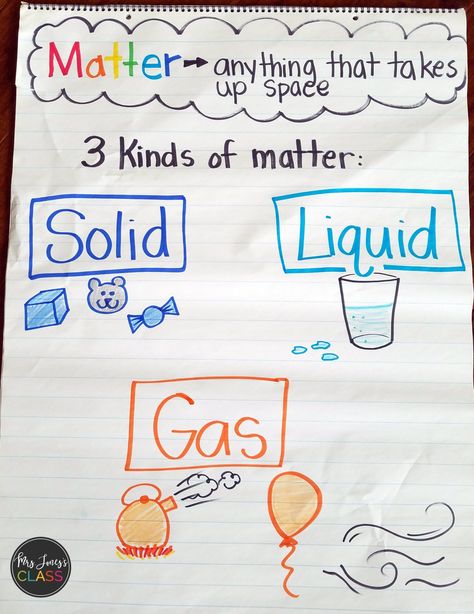 Matter → anything that takes
up space
3 Kinds of matter:
Solid
Liquid
Gas
Mrs. Jones's
CLASS